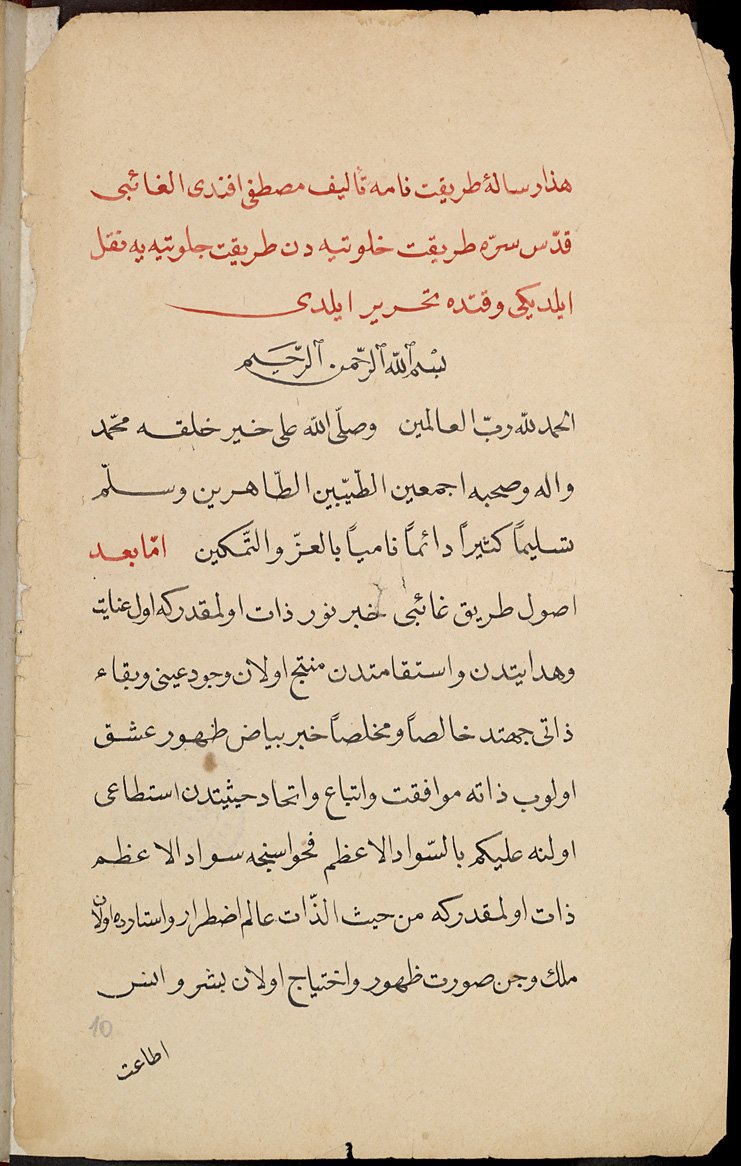 هذا رسالۀ طريقت نامه تأليف مصطفى افندى الغائبى
قدّس سرّه طريقت خلوتيه دن طريقت جلوتيه يه نقل
ايلديكى وقتده تحرير ايلدى
بسم الله الرّحمن الرّحيم
الحمد لله ربّ العالمين وصلّى الله على خير خلقه محمّد
واله وصحبه اجمعين الطّيّبين الطّاهرين وسلّم
تسليماً كثيراً دائماً ناميـاً بالعزّ والتّمكين امّا بعد
اصول طريق غائبى خبر نور ذات اولمقدركه اول عنايت
وهدايتدن واستقامتدن منتج اولان وجود عينى وبقاء
ذاتى جهتد خالصاً ومخلصاً خبر بياض ظهور عشق
اولوب ذاته موافقت واتباع واتحاد حيثيتدن استطاعى
اولنه عليكم بالسّواد الاعظم فحواسنجه سواد الاعظم
ذات اولمقدركه من حيث الذّات عالم اضطرار واستارده اولان
ملك وجن صورت ظهور واختياج اولان بشر وانس
اطاعت
10